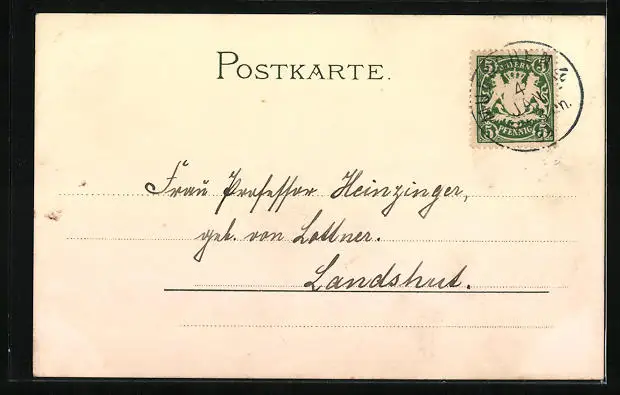 POSTKARTE.
5 BAYERN 5
5 PFENNIG 5
4
JAN
Frau Professor Heinzinger,
geb. von Lottner.
Landshut.